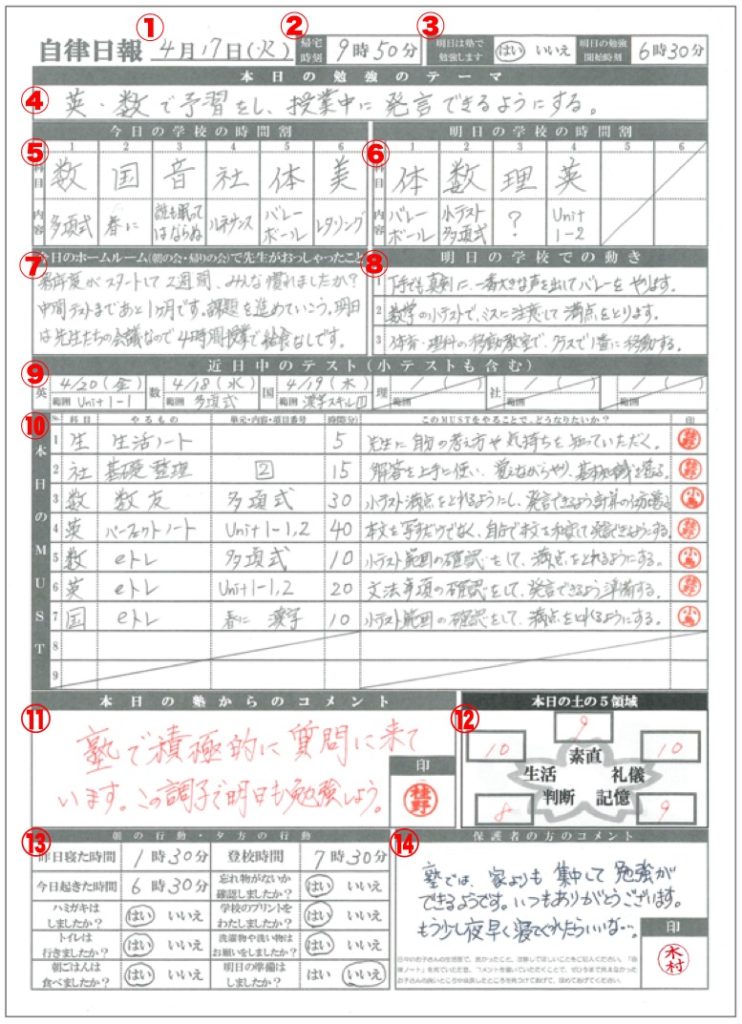 ① ② ③
自律日報 4月17日(火) 帰宅時刻 9時50分 明日は塾で勉強します はい いいえ 明日の勉強開始時刻 6時30分
本日の勉強のテーマ
④ 英・数で予習をし、授業中に発言できるようにする。
今日の学校の時間割 明日の学校の時間割
⑤ 1 2 3 4 5 6 ⑥ 1 2 3 4 5 6
科目 数 国 音 社 体 美 科目 体 数 理 英
内容 多項式 春に 誰も眠ってはならぬ ルネサンス バレーボール レタリング 内容 バレーボール 小テスト多項式 ? Unit1-2
⑦ 今日のホームルーム(朝の会・帰りの会)で先生がおっしゃったこと ⑧ 明日の学校での動き
新年度がスタートして2週間、みんな慣れましたか?
中間テストまであと1ヶ月です。課題を進めていこう。明日
は先生たちの会議なので4時間授業で給食なしです。
1 真剣に、一番大きな声を出してバレーをやります。
2 数学の小テストで、ミスに注意して満点をとります。
3 理科の移動教室で、クラスで1番に移動する。
⑨ 近日中のテスト(小テストも含む)
英 4/20(金) 数 4/18(水) 国 4/19(木) 理 /( ) 社 /( ) /( )
範囲 Unit1-1 範囲 多項式 範囲 漢字スキル 範囲 範囲 範囲
⑩ 本日のMUST
No. 科目 やるもの 単元・内容・項目番号 時間(分) このMUSTをやることで、どうなりたいか? 印
1 生 生活ノート 5 先生に自分の考え方や気持ちを知っていただく。
2 社 基礎整理 2 15 解答を上手に使い、覚えながらやり、
3 数 数友 多項式 30 小テスト満点をとれるようにし、発言できるよう計算の
4 英 パーフェクトノート Unit1-1,2 40 本文を写すだけでなく、自分で本文を和訳して発言できるようにする。
5 数 eトレ 多項式 10 小テスト範囲の確認をして、満点をとれるようにする。
6 英 eトレ Unit1-1,2 20 文法事項の確認をして、発言できるよう準備する。
7 国 eトレ 春に 漢字 10 小テスト範囲の確認をして、満点をとれるようにする。
8
9
⑪ 本日の塾からのコメント
塾で積極的に質問に来て
います。この調子で明日も勉強しよう。
印
⑫ 本日の土の5領域
9
10 素直 10
生活 礼儀
判断 記憶
8 9
⑬ 朝の行動・夕方の行動
昨日寝た時間 1時30分 登校時間 7時30分
今日起きた時間 6時30分 忘れ物がないか確認しましたか? はい いいえ
ハミガキはしましたか? はい いいえ 学校のプリントをわたしましたか? はい いいえ
トイレは行きましたか? はい いいえ 洗濯物や洗い物はお願いをしましたか? はい いいえ
朝ごはんは食べましたか? はい いいえ 明日の準備はしましたか? はい いいえ
⑭ 保護者の方のコメント
塾では、家よりも集中して勉強が
できるようです。いつもありがとうございます。
もう少し夜早く寝てくれたらいいな…。
印
木村